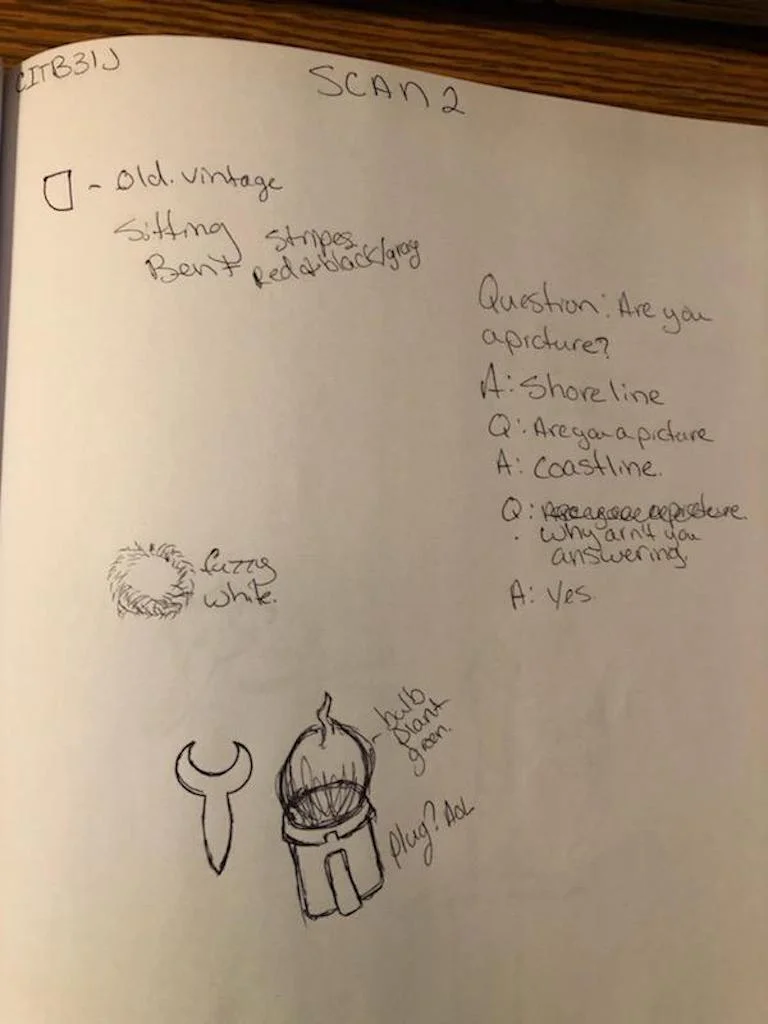 CITB31J
SCAN 2
- Old. vintage
Sitting stripes
Bent Red & black/gray
Question: Are you
a picture?
A: Shoreline
Q: Are you a picture
A: Coastline.
Q:
. why arn't you
answering.
A: Yes.
fuzzy
white.
- bulb
plant
green.
plug? AOL